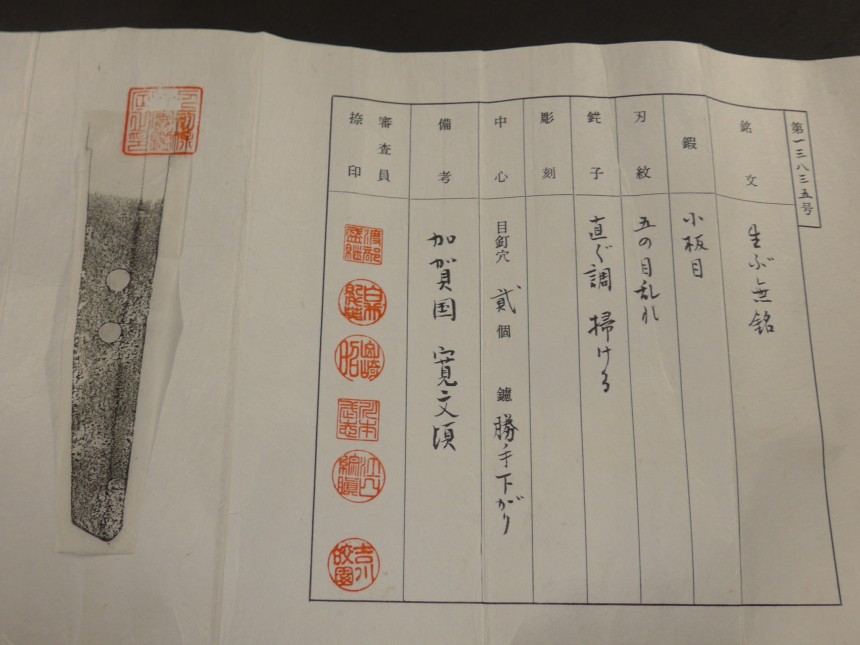 第一三八三五号
銘文
生ぶ無銘
鍜
小板目
刃紋
五の目乱れ
鋩子
直ぐ調 掃ける
彫刻
中心
目釘穴 貳 個 鑢 勝手下がり
備考
加賀国 寛文頃
審査員
捺印
宮崎
吉川